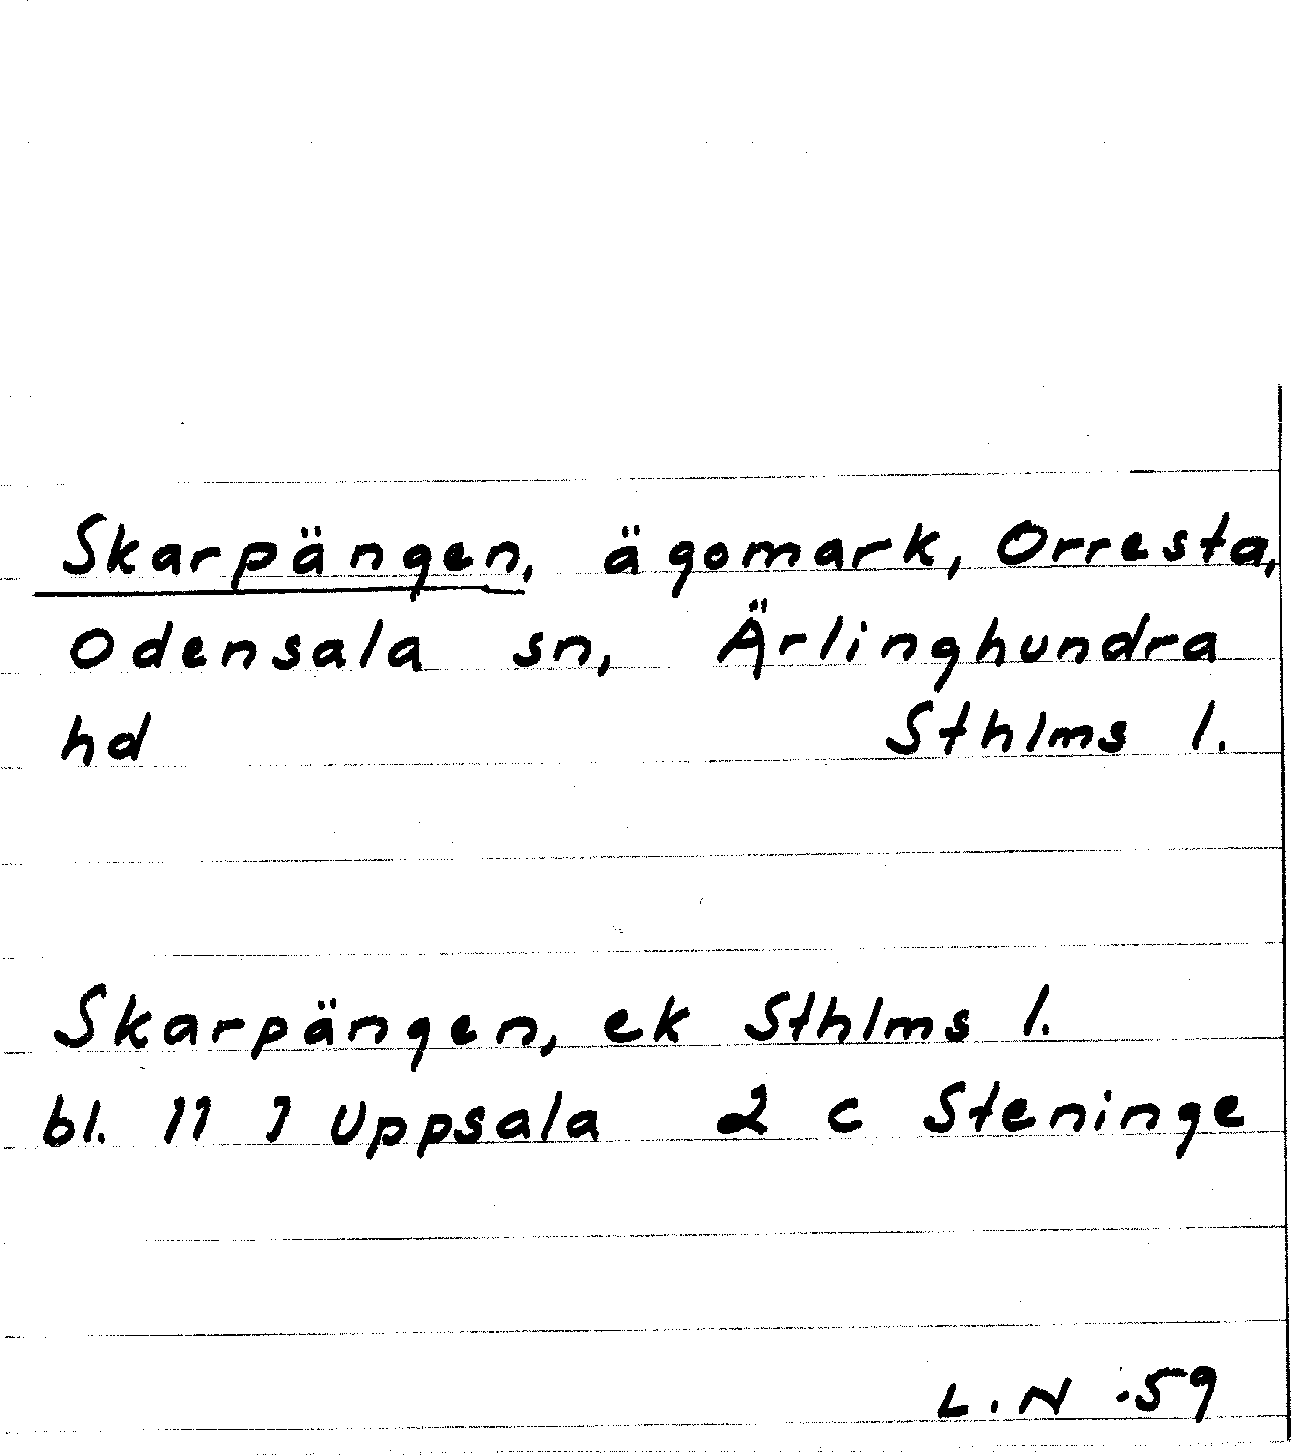 Skarpängen, ägomark, Orresta,
Odensala sn, Ärlinghundra
hd Sthlms l.
Skarpängen, ek Sthlms l.
bl. 11 I Uppsala 2 c Steninge
L.N. 59